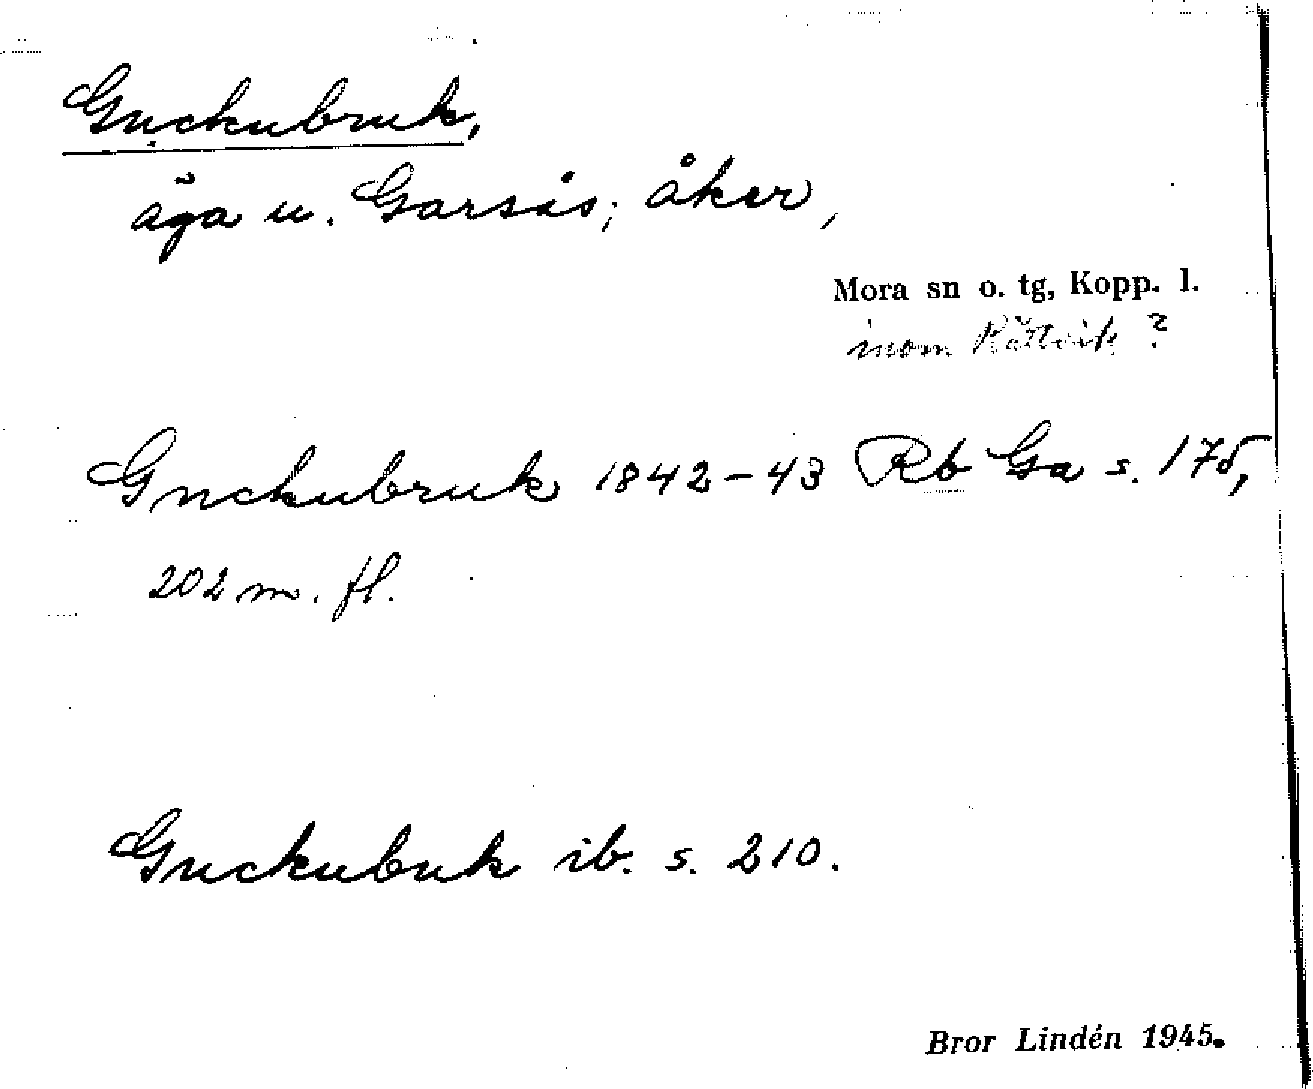 Guckubruk,
äga u. Garsås; åker,
Mora sn o. tg, Kopp. l.
inom Rättvik?
Guckubruk 1842-43 Rb Ga s. 175,
202 m. fl.
Guckubuk ib. s. 210.
Bror Lindén 1945.